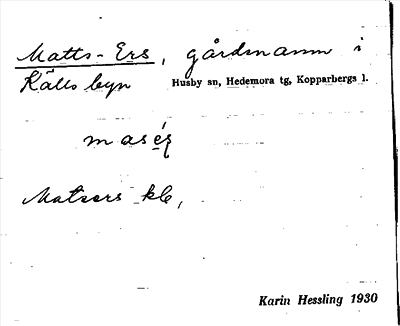 Matts-Ers, gårdsnamn i
Källsbyn Husby sn, Hedemora tg, Kopparbergs l.
Matsers kl,
Karin Hessling 1930